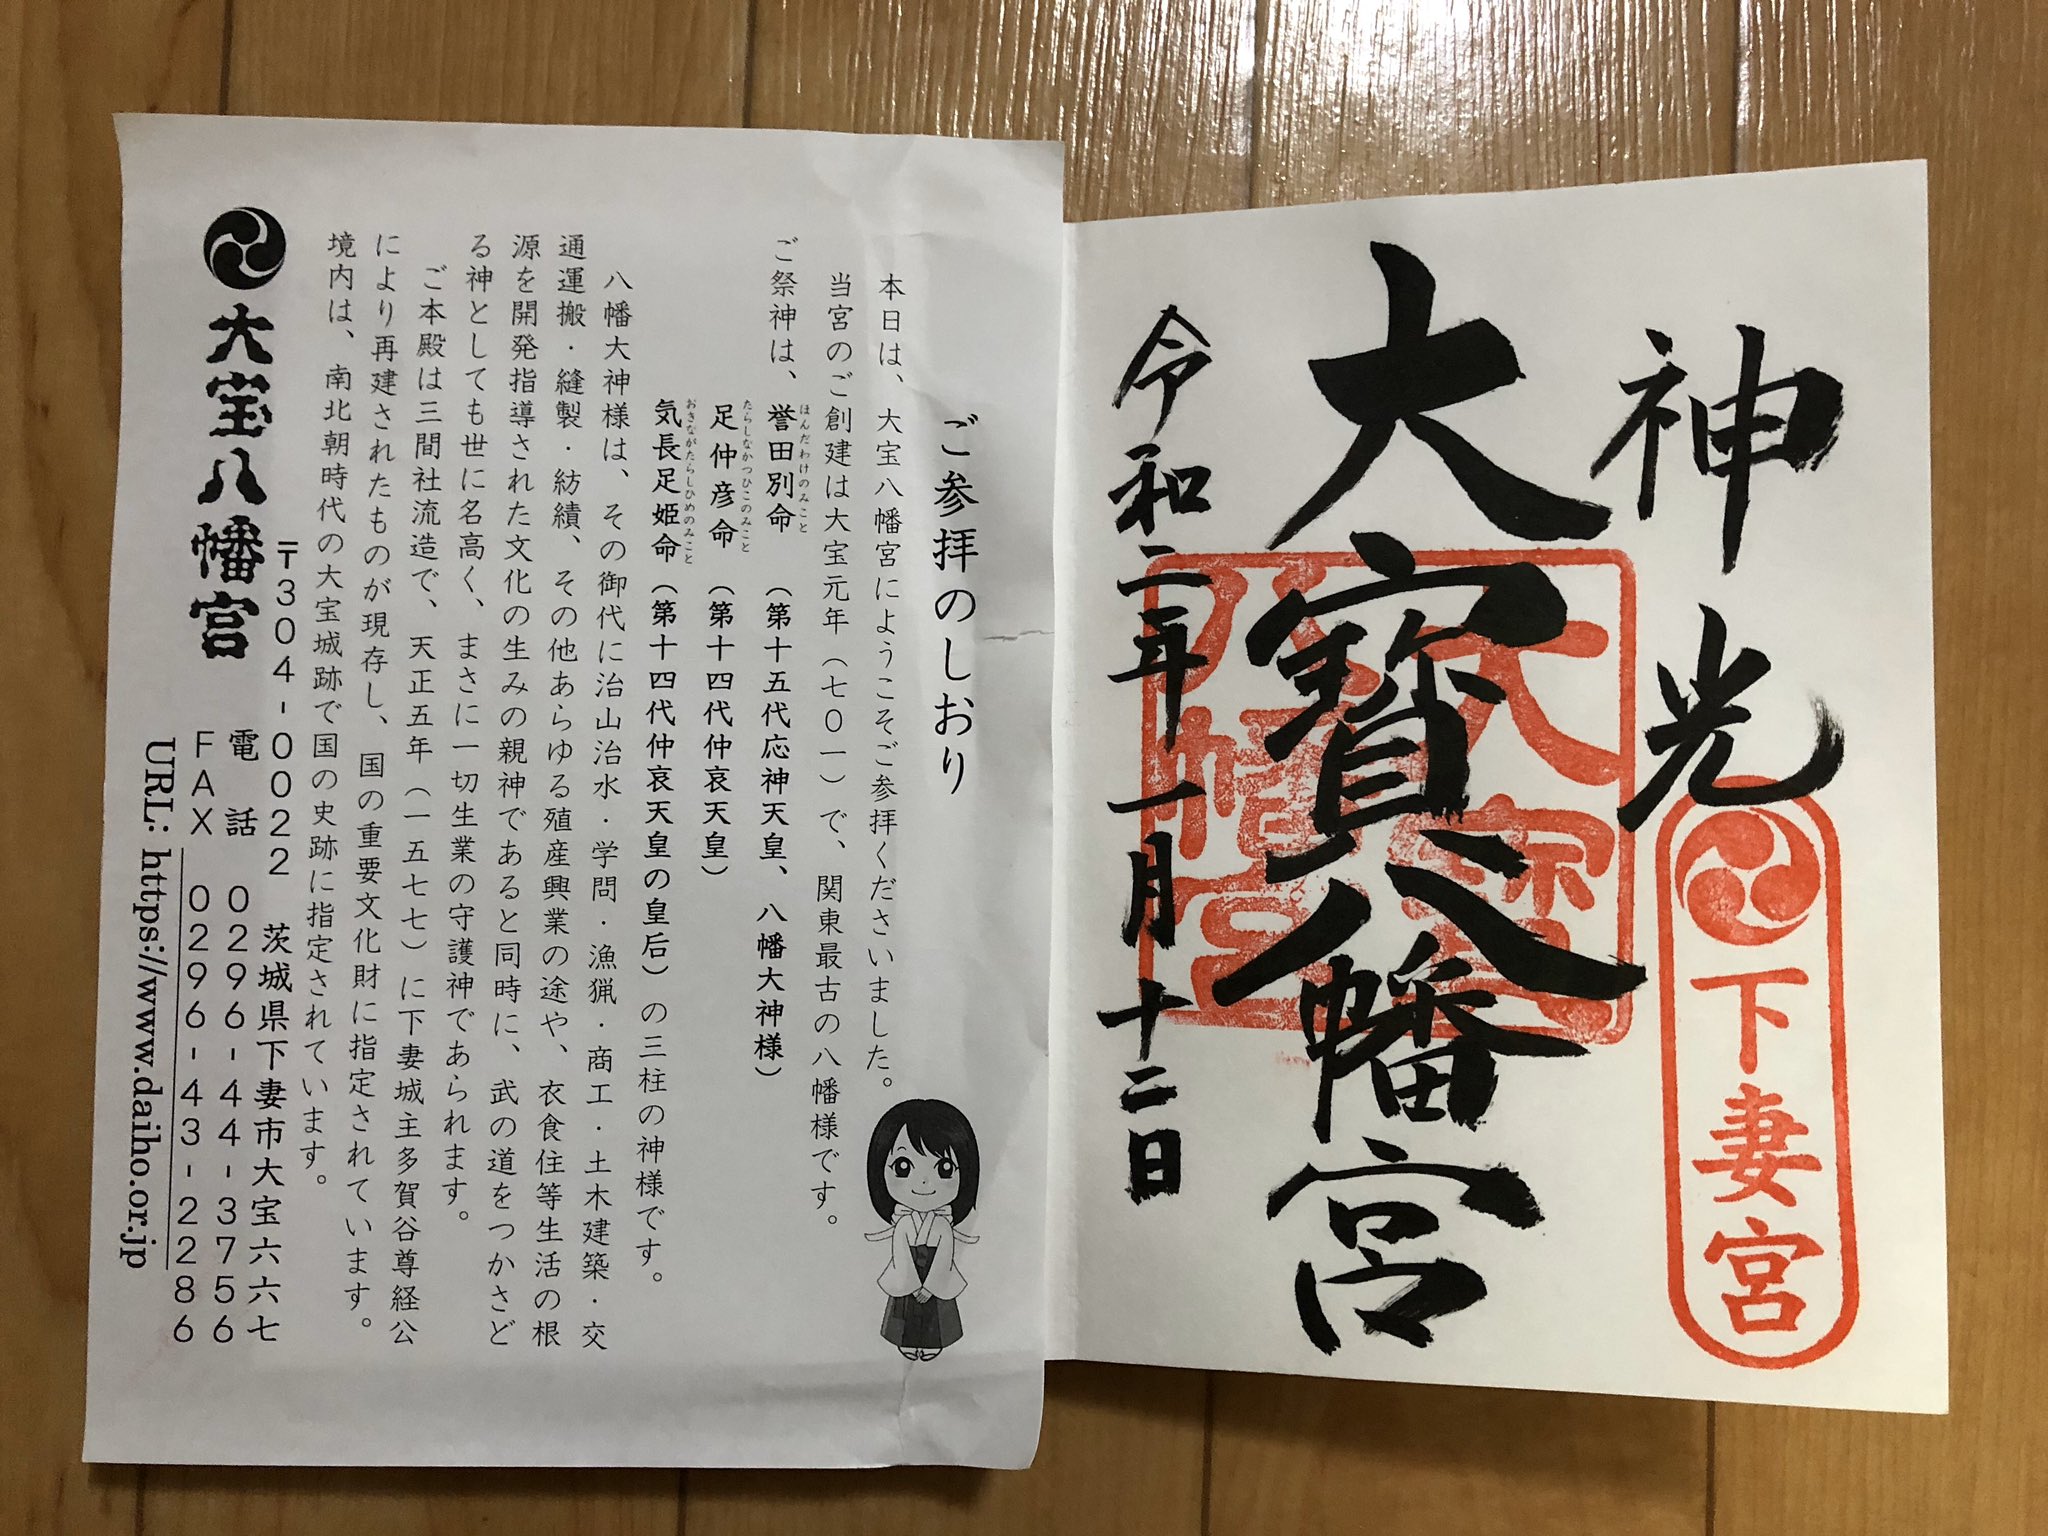 神光
下妻宮
大寳八幡宮
大寳八幡宮
令和二年一月十二日
ご参拝のしおり
本日は、大宝八幡宮にようこそご参拝くださいました。
当宮のご創建は大宝元年（七〇一）で、関東最古の八幡様です。
ご祭神は、誉田別命（第十五代応神天皇、八幡大神様）
ほんだわけのみこと
足仲彦命（第十四代仲哀天皇）
たらしなかつひこのみこと
気長足姫命（第十四代仲哀天皇の皇后）の三柱の神様です。
おきながたらしひめのみこと
八幡大神様は、その御代に治山治水・学問・漁猟・商工・土木建築・交
通運搬・縫製・紡績、その他あらゆる殖産興業の途や、衣食住等生活の根
源を開発指導された文化の生みの親神であると同時に、武の道をつかさど
る神としても世に名高く、まさに一切生業の守護神であられます。
ご本殿は三間社流造で、天正五年（一五七七）に下妻城主多賀谷尊経公
により再建されたものが現存し、国の重要文化財に指定されています。
境内は、南北朝時代の大宝城跡で国の史跡に指定されています。
大宝八幡宮
〒304-0022 茨城県下妻市大宝六六七
電話 0296-44-3756
FAX 0296-43-2286
URL: https://www.daiho.or.jp